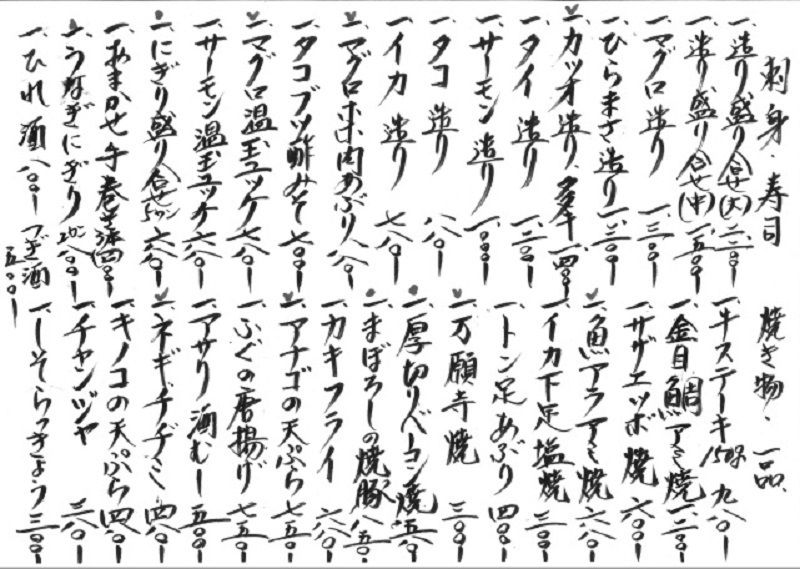 刺身・寿司
一、造り盛り合せ(大) 二二〇〇ー
一、造り盛り合せ(中) 一、五〇〇ー
一、マグロ造り 一、三〇〇ー
一、ひらまさ造り 一、二〇〇ー
一、カツオ造り、タタキ 一、四〇〇ー
一、タイ造り 一、二〇〇ー
一、サーモン造り 一、〇〇〇ー
一、タコ造り 八八〇ー
一、イカ造り 七八〇ー
一、マグロホホ肉あぶり 八八〇ー
一、タコブツ酢みそ 七〇〇ー
一、マグロ温玉ユッケ 七八〇ー
一、サーモン温玉ユッケ 六八〇ー
一、にぎり盛り合せ 5カン 六八〇ー
一、おまかせ手巻き 四〇〇ー
一、うなぎにぎり 2カン 八〇〇ー
一、ひれ酒 八〇〇ー つぎ酒 五〇〇ー
焼き物・一品
一、牛ステーキ 150g 九八〇ー
一、金目鯛アミ焼 一、二〇〇ー
一、サザエツボ焼 六〇〇ー
一、魚アラアミ焼 六八〇ー
一、イカ下足塩焼 三〇〇ー
一、トン足あぶり 四〇〇ー
一、万願寺焼 三〇〇ー
一、厚切りベーコン焼 五八〇ー
一、まぼろしの焼豚 八五〇ー
一、カキフライ 六八〇ー
一、アナゴの天ぷら 七五〇ー
一、ふぐの唐揚げ 七五〇ー
一、アサリ酒むし 五五〇ー
一、ネギチヂミ 四八〇ー
一、キノコの天ぷら 四八〇ー
一、チャンヂャ 三八〇ー
一、しそらっきょう 三〇〇ー